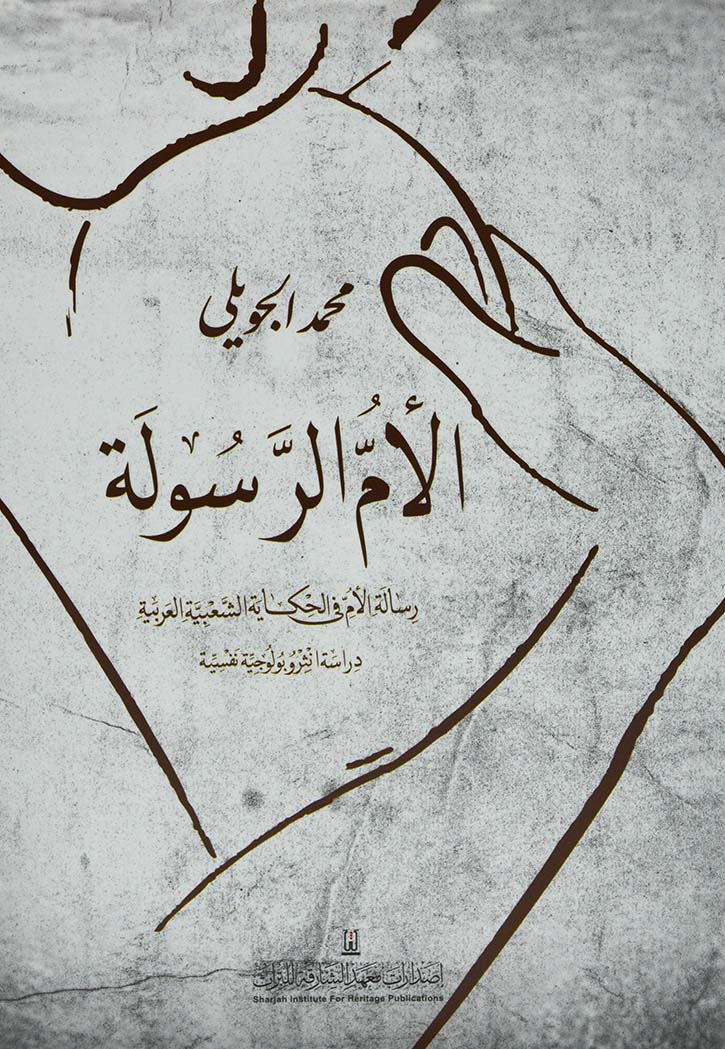 محمد الجويلي
الأمُّ الرَّسُولَة
رِسالَة الأمّ في الحكاية الشَّعْبِيَّة العَرَبِيَّةِ
دِراسَة انْثِرُوبُولُوجِيَّة نَفْسِيَّة
إصدارات معهد الشارقة للتراث
Sharjah Institute For Heritage Publications